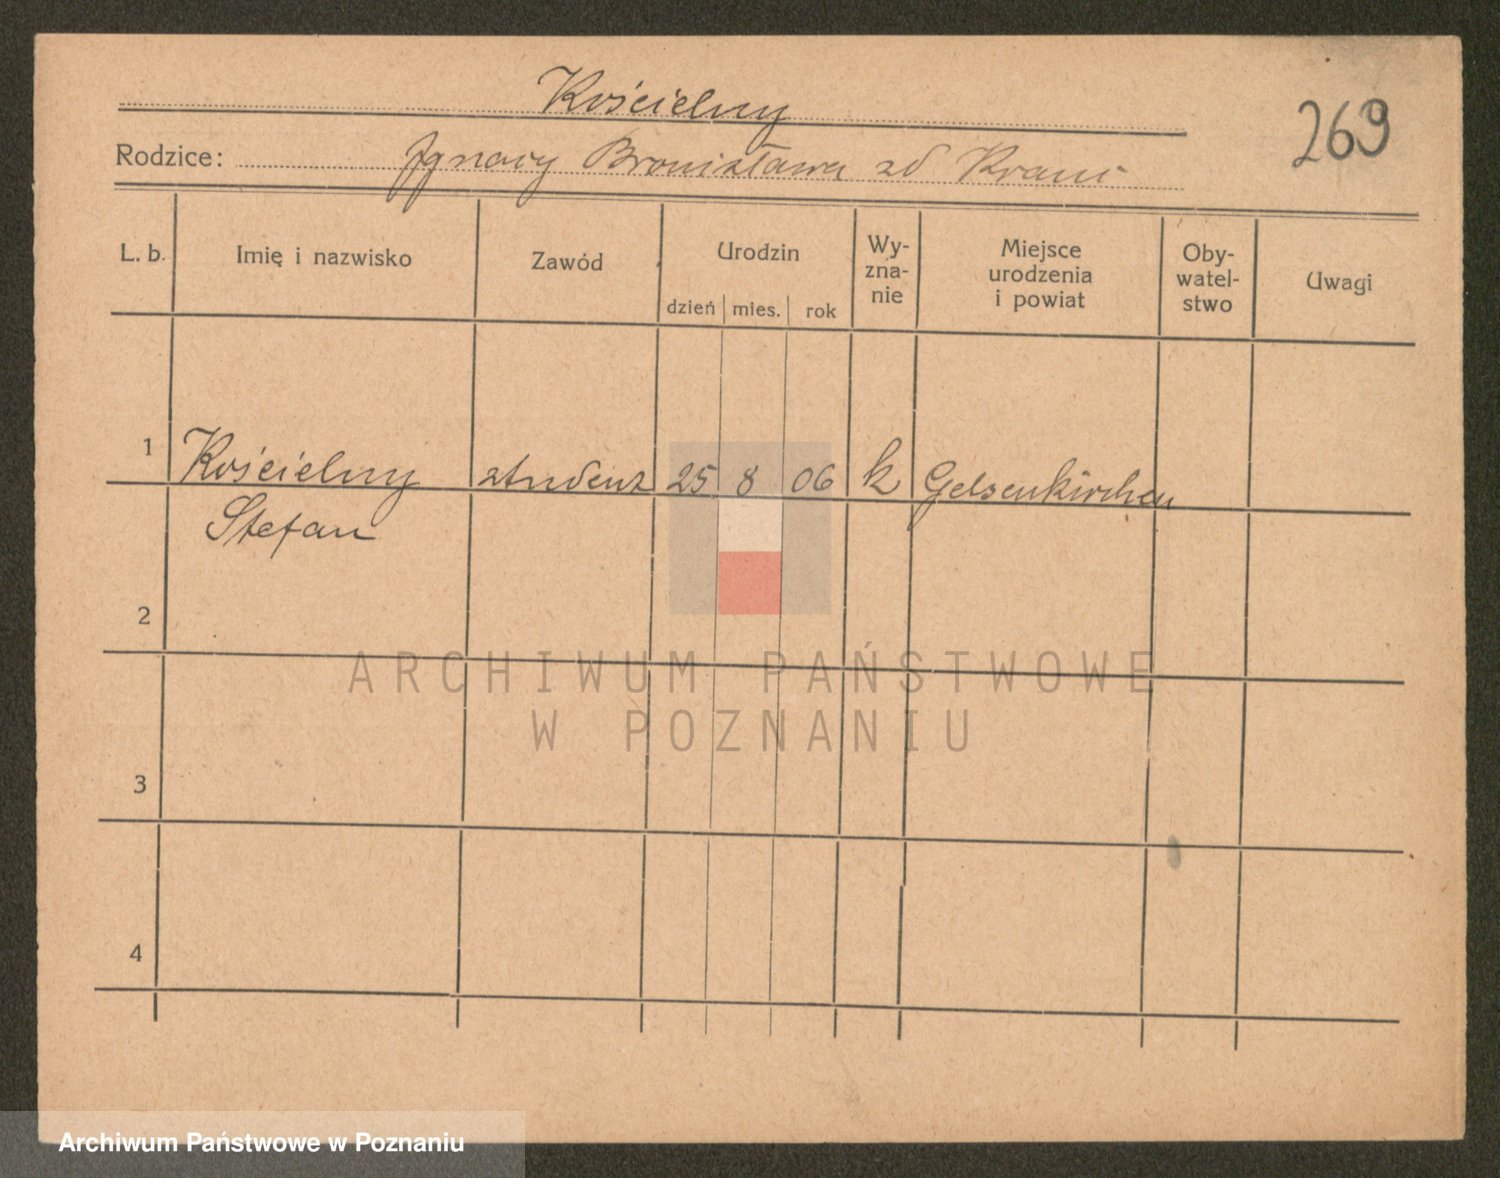 Kościelny
269
Rodzice: Ignacy Bronisława zd
L. b. Imię i nazwisko Zawód Urodzin Wy- Miejsce Oby- Uwagi
zna- urodzenia watel-
nie i powiat stwo
dzień mies. rok
1 Kościelny student 25 8 06 k Gelsenkirchen
Stefan
2
ARCHIWUM PAŃSTWOWE
W POZNANIU
3
4
Archiwum Państwowe w Poznaniu